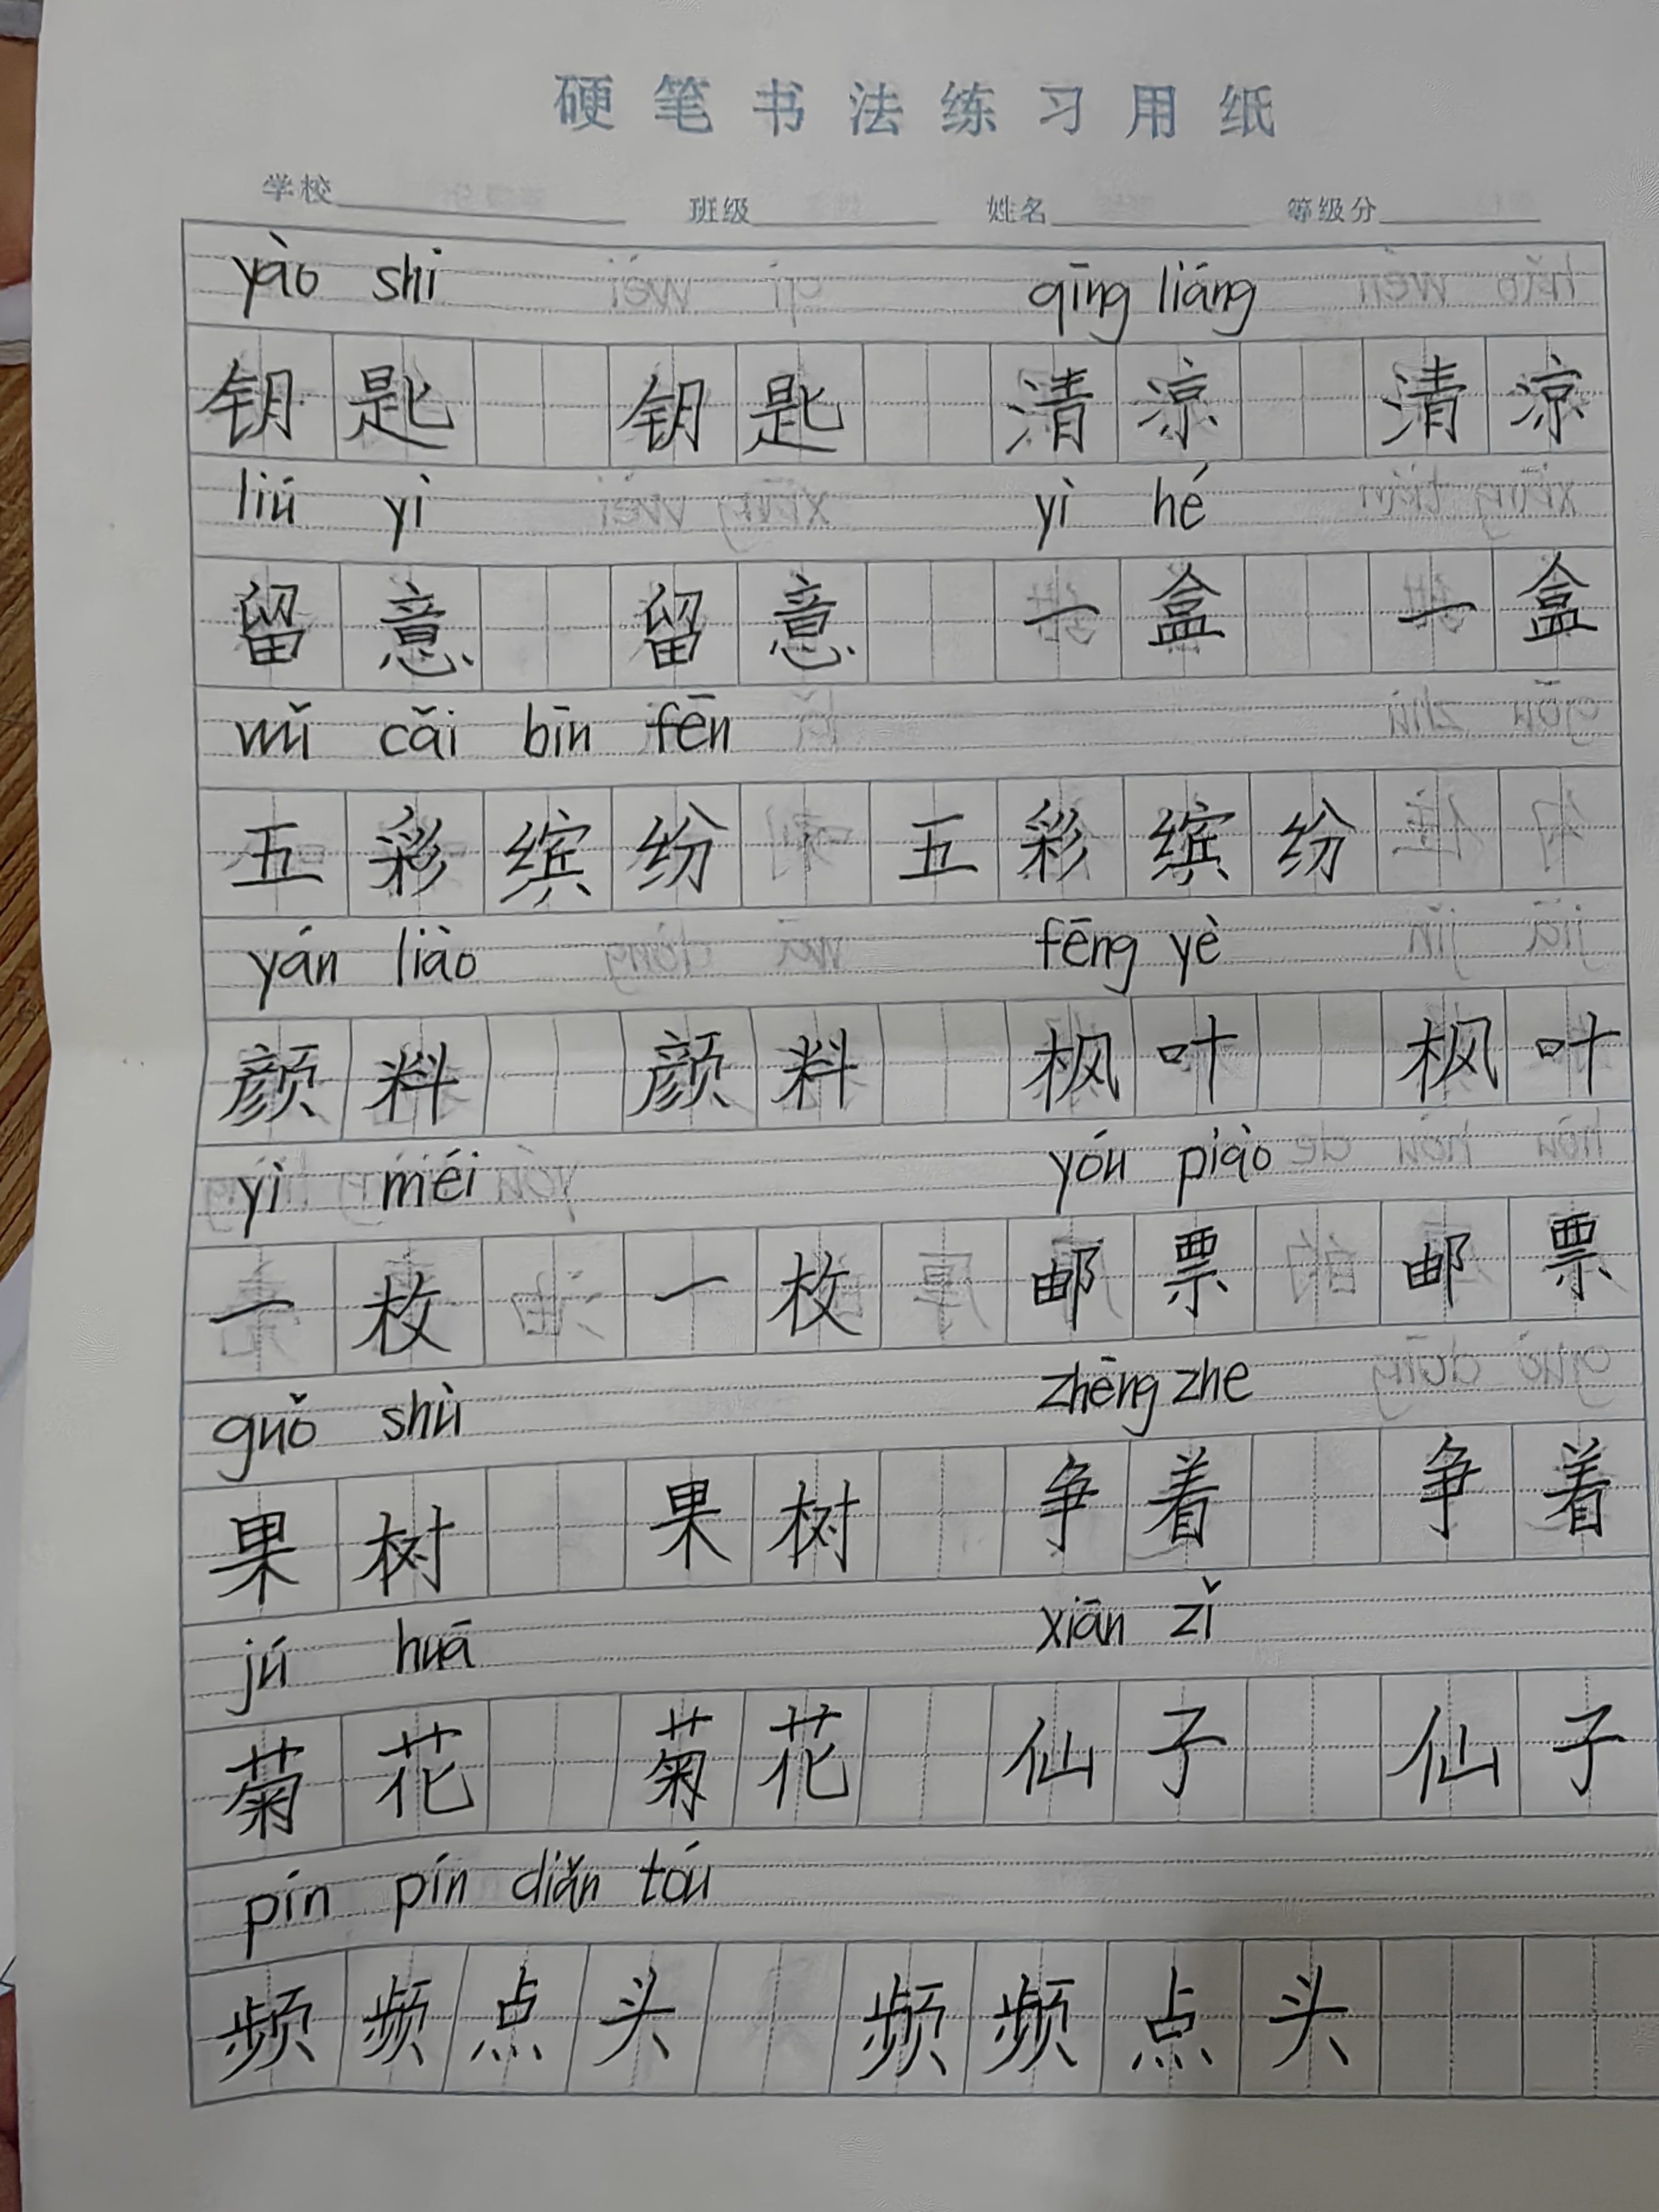 硬笔书法练习用纸
学校 班级 姓名 等级分
yào shi qīng liáng
钥匙 钥匙 清凉 清凉
liú yì yì hé
留意 留意 一盒 一盒
wǔ cǎi bīn fēn
五彩缤纷 五彩缤纷
yán liào fēng yè
颜料 颜料 枫叶 枫叶
yì méi yóu piào
一枚 一枚 邮票 邮票
guǒ shù zhēng zhe
果树 果树 争着 争着
jú huā xiān zǐ
菊花 菊花 仙子 仙子
pín pín diǎn tóu
频频点头 频频点头